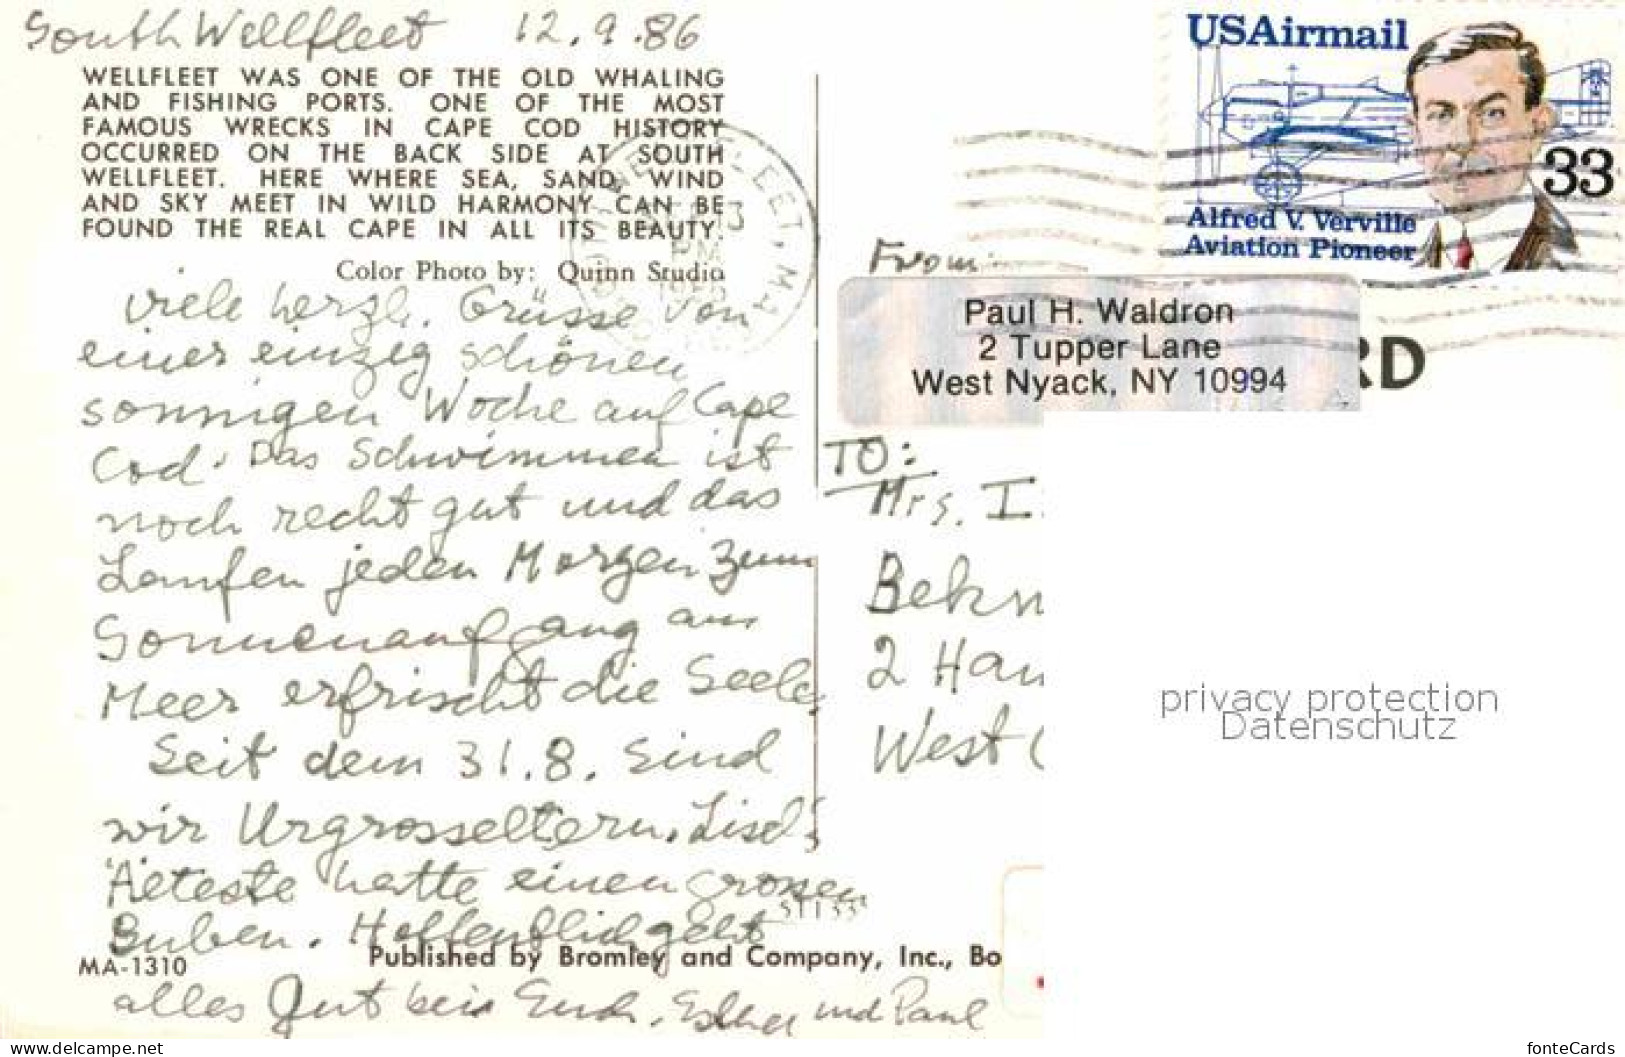 South Wellfleet 12.9.86
WELLFLEET WAS ONE OF THE OLD WHALING
AND FISHING PORTS. ONE OF THE MOST
FAMOUS WRECKS IN CAPE COD HISTORY
OCCURRED ON THE BACK SIDE AT SOUTH
WELLFLEET. HERE WHERE SEA, SAND, WIND
AND SKY MEET IN WILD HARMONY CAN BE
FOUND THE REAL CAPE IN ALL ITS BEAUTY.
Color Photo by: Quinn Studio
viele herzl. Grüsse von
einer einzig schönen
sonnigen Woche auf Cape
Cod. Das Schwimmen ist
noch recht gut und das
Laufen jeden Morgen zum
Sonnenaufgang am
Meer erfrischt die Seele.
Seit dem 31.8. sind
wir Urgrosseltern. Lisel's
Älteste hatte einen grossen
Buben. Hoffentlich geht
MA-1310
Published by Bromley and Company, Inc., Bo
alles gut bei Euch. Esther und Paul
USAirmail
33
Alfred V. Verville
Aviation Pioneer
From:
Paul H. Waldron
2 Tupper Lane
West Nyack, NY 10994
RD
TO:
Mrs. I.
2 Han
West
privacy protection
Datenschutz
www.delcampe.net
fonteCards